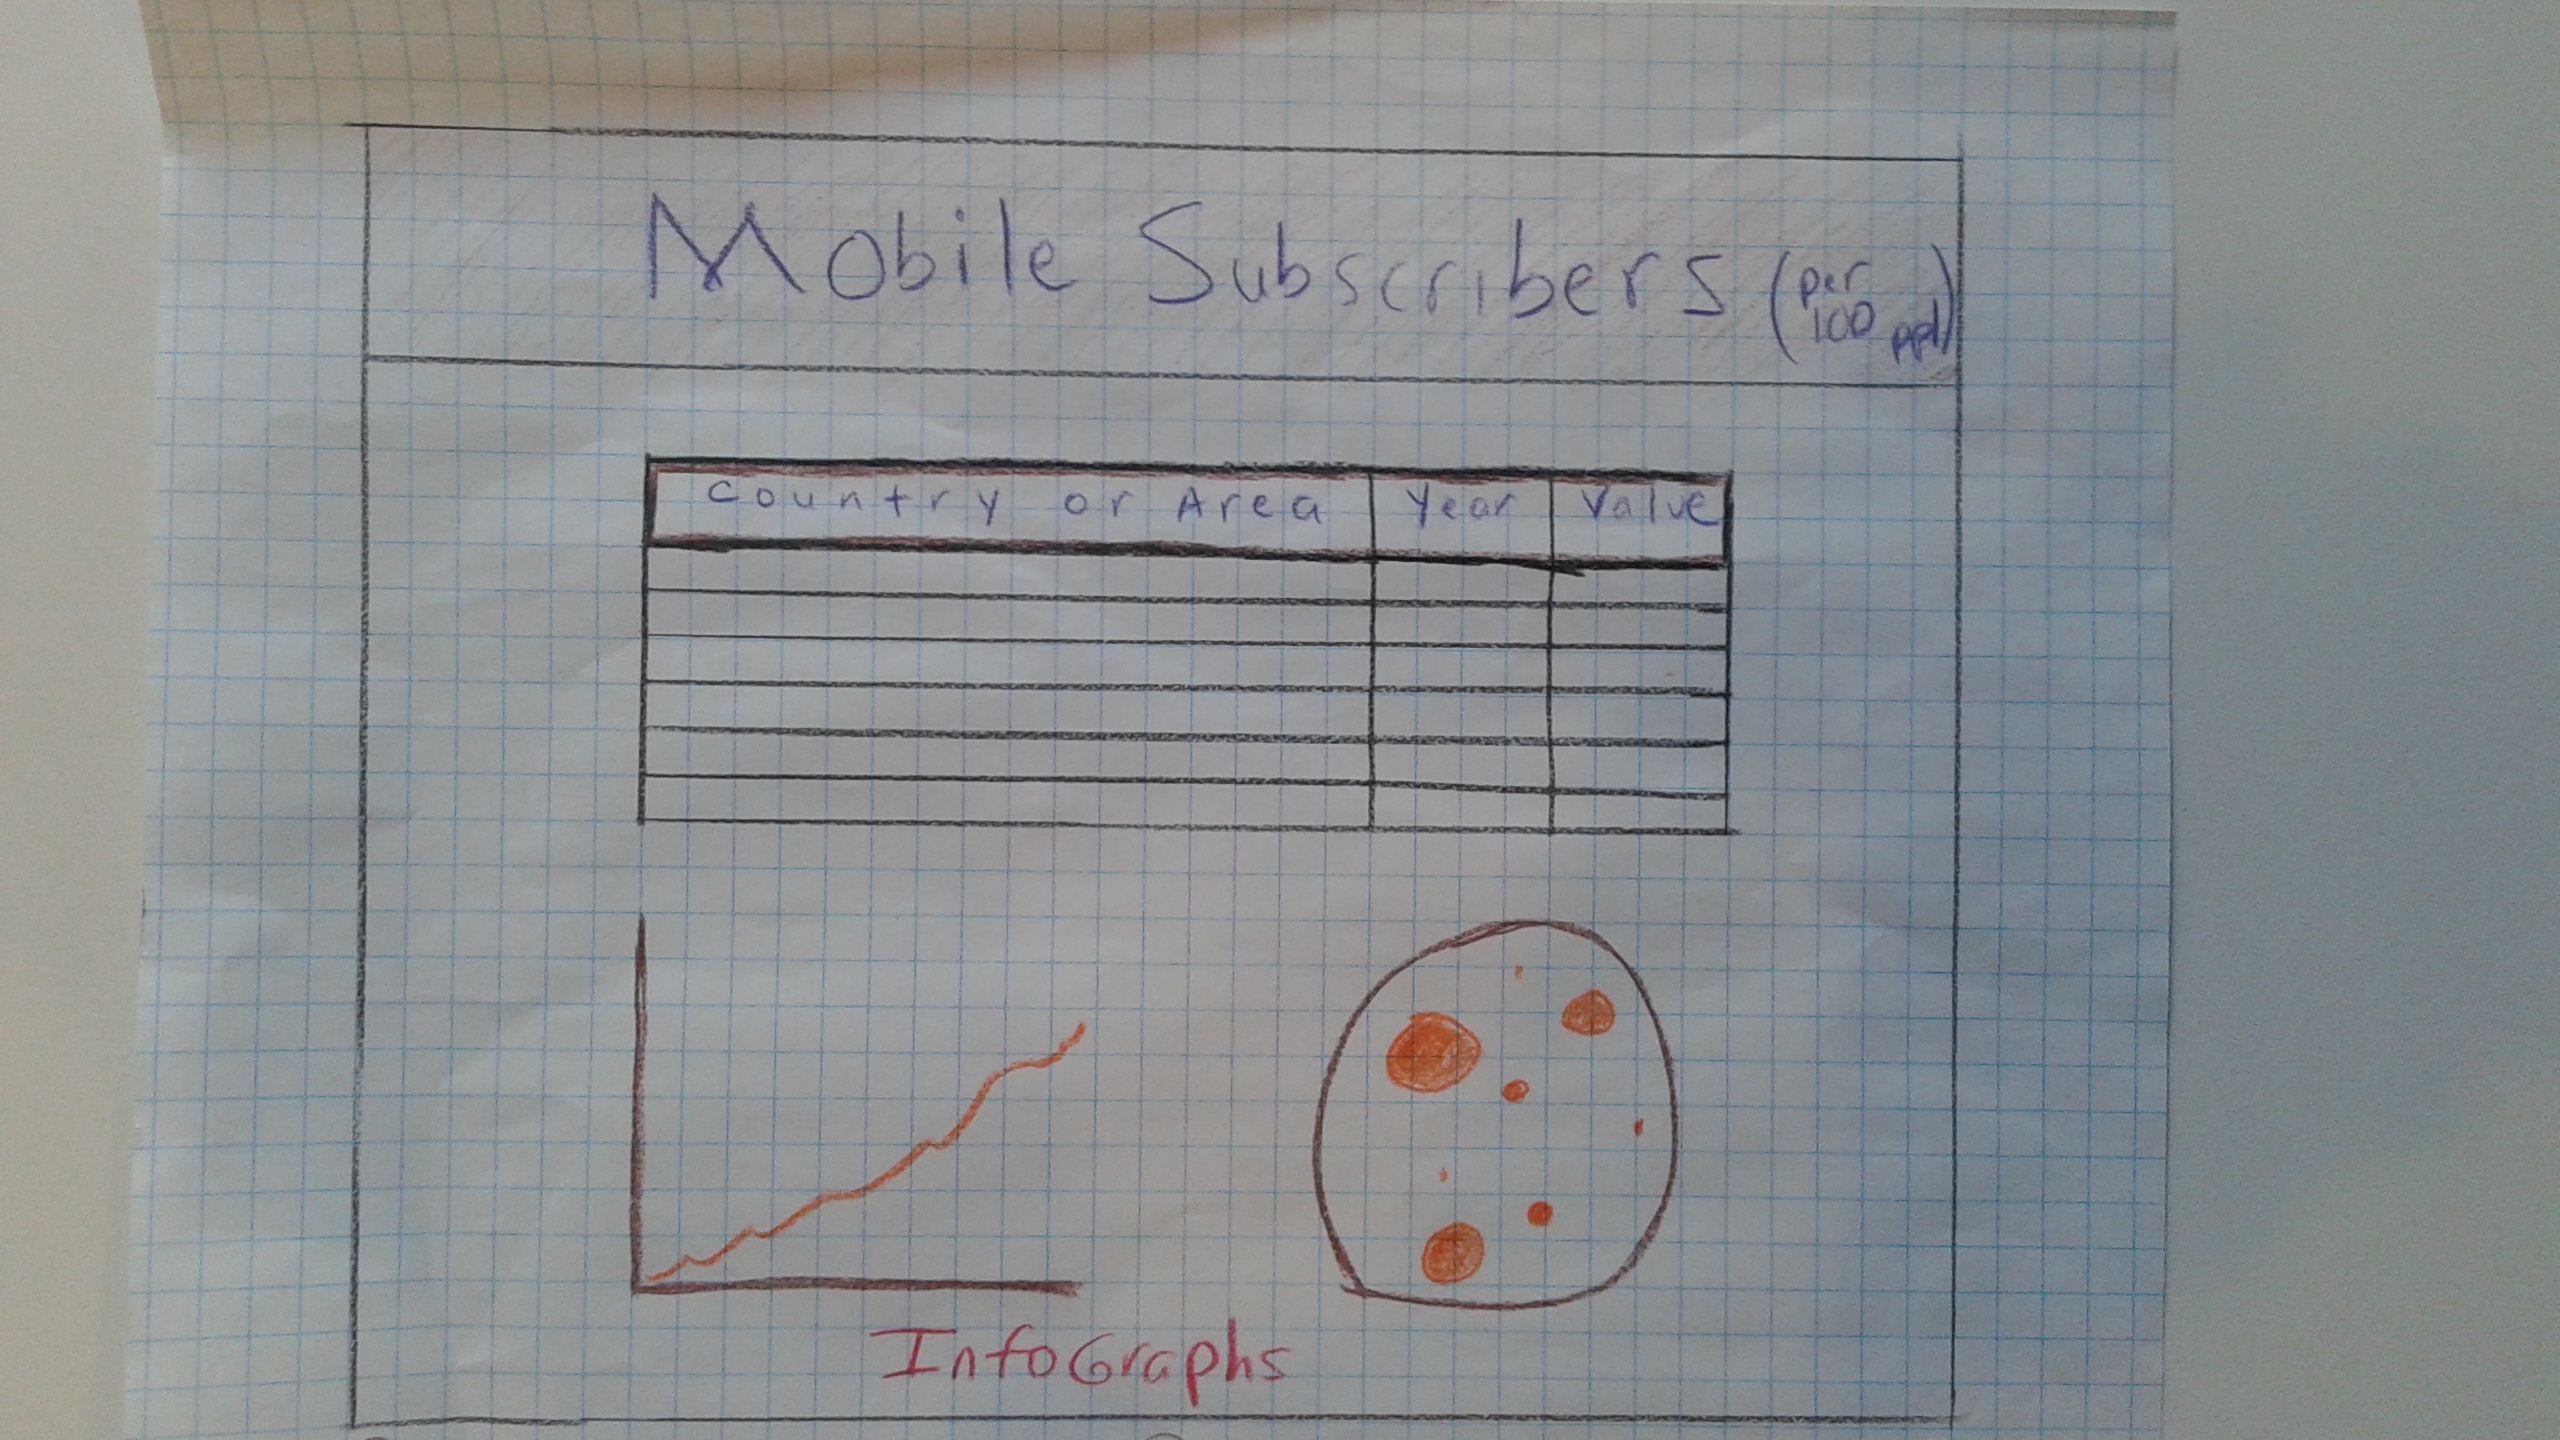 Mobile Subscribers (per 100 ppl)
Country or Area Year Value
InfoGraphs